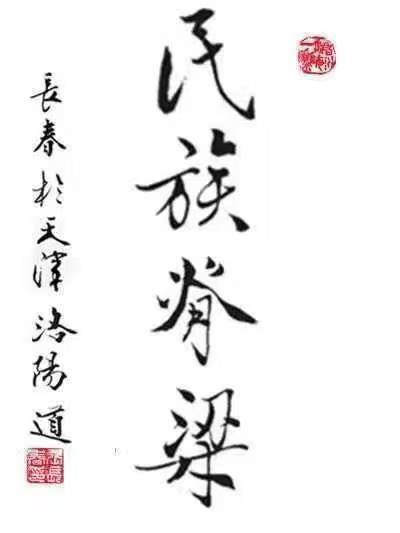 民族脊梁
長春於天津洛陽道